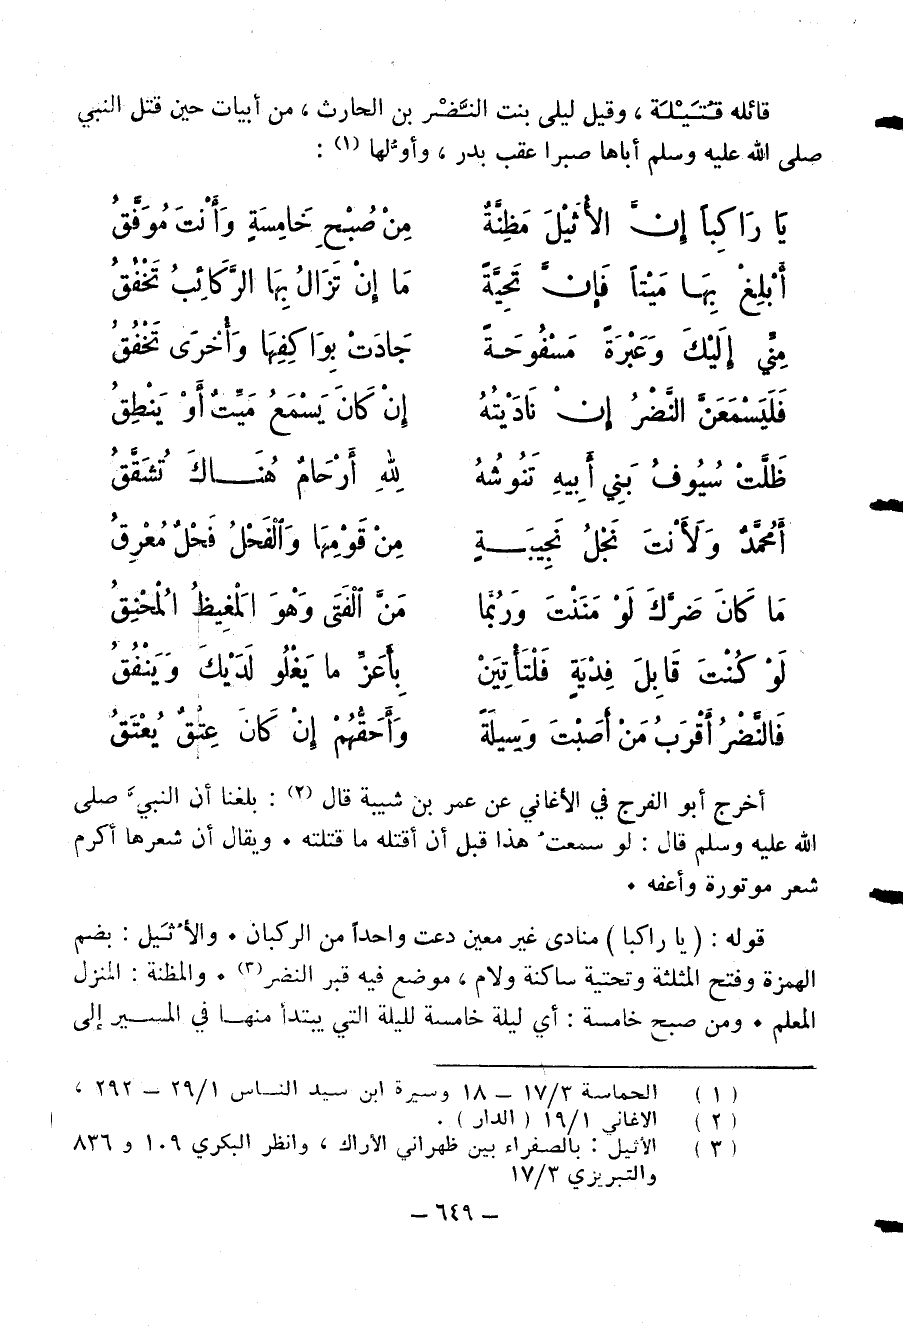 قائله قُتَيْلَة ، وقيل ليلى بنت النَّضْر بن الحارث ، من أبيات حين قتل النبي
صلى الله عليه وسلم أباها صبرا عقب بدر ، وأوّلها (١) :
يَا رَاكِباً إِنَّ الأُثَيْلَ مَظِنَّةٌ مِنْ صُبْحِ خَامِسَةٍ وَأَنْتَ مُوَفَّقُ
أَبْلِغْ بِهَا مَيْتاً فَإِنَّ تَحِيَّةً مَا إِنْ تَزَالُ بِهَا الرَّكَائِبُ تَخْفُقُ
مِنِّي إِلَيْكَ وَعَبْرَةً مَسْفُوحَةً جَادَتْ بِوَاكِفِهَا وَأُخْرَى تَخْفُقُ
فَلَيَسْمَعَنَّ النَّضْرُ إِنْ نَادَيْتُهُ إِنْ كَانَ يَسْمَعُ مَيِّتٌ أَوْ يَنْطِقُ
ظَلَّتْ سُيُوفُ بَنِي أَبِيهِ تَنُوشُهُ لِلهِ أَرْحَامٌ هُنَاكَ تُشَقَّقُ
أَمُحَمَّدٌ وَلَأَنْتَ نَجْلُ نَجِيبَةٍ مِنْ قَوْمِهَا وَالْفَحْلُ فَحْلٌ مُعْرِقُ
مَا كَانَ ضَرَّكَ لَوْ مَنَنْتَ وَرُبَّمَا مَنَّ الْفَتَى وَهْوَ الْمَغِيظُ الْمُحْنِقُ
لَوْ كُنْتَ قَابِلَ فِدْيَةٍ فَلَتَأْتِيَنْ بِأَعَزِّ ما يَغْلُو لَدَيْكَ وَيَنْفُقُ
فَالنَّضْرُ أَقْرَبُ مَنْ أَصَبْتَ وَسِيلَةً وَأَحَقُّهُمْ إِنْ كَانَ عِتْقٌ يُعْتَقُ
أخرج أبو الفرج في الأغاني عن عمر بن شيبة قال (٢) : بلغنا أن النبيّ صلى
الله عليه وسلم قال : لو سمعتُ هذا قبل أن أقتله ما قتلته ٠ ويقال أن شعرها أكرم
شعر موتورة وأعفه ٠
قوله : ( يا راكبا ) منادى غير معين دعت واحداً من الركبان ٠ والأُثَيل : بضم
الهمزة وفتح المثلثة وتحتية ساكنة ولام ، موضع فيه قبر النضر(٣) ٠ والمظنة : المنزل
المعلم ٠ ومن صبح خامسة : أي ليلة خامسة لليلة التي يبتدأ منها في المسير إلى
(١) الحماسة ١٧/٣ – ١٨ وسيرة ابن سيد الناس ٢٩/١ – ٢٩٢ ،
(٢) الاغاني ١٩/١ ( الدار ) .
(٣) الأثيل : بالصفراء بين ظهراني الأراك ، وانظر البكري ١٠٩ و ٨٣٦
والتبريزي ١٧/٣
– ٦٤٩ –